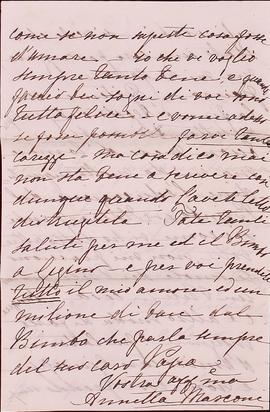 come se non sapeste cosa fosse
d'amare — io che vi voglio
sempre tanto bene! e quando
faccio dei sogni di voi sono
tutta felice — e vorrei adesso
se fosse possibile farvi tante
carezze — ma cosa dico mai
non sta bene a scrivere così
dunque quando l'avete letto
distruggetela Fate tanti
saluti per me ed il Bimbo
a Gigino e per voi prendete
tutto il mio amore ed un
milione di baci dal
Bimbo che parla sempre
del suo caro Papà
Vostra aff.ma
Annetta Marconi